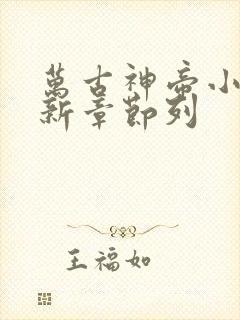 萬古神帝小
新章節列
王福如